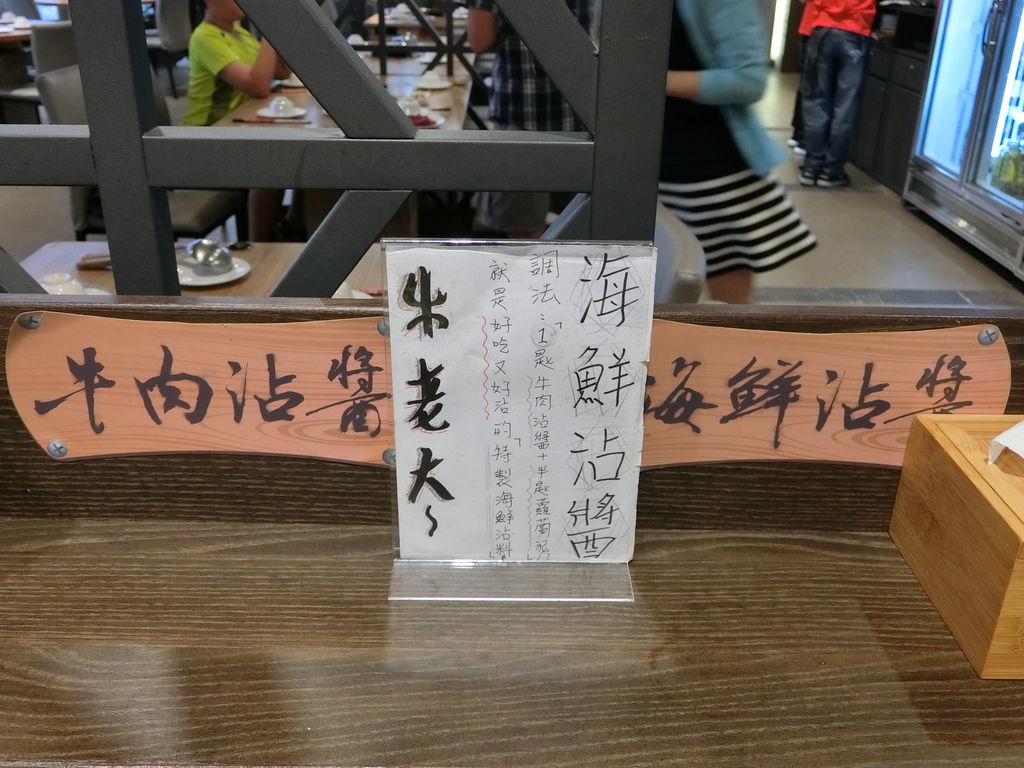 牛肉沾醬
海鮮沾醬
海鮮沾醬
調法：「1匙牛肉沾醬+半匙蘿蔔泥」
就是好吃又好沾的「特製海鮮沾料」
牛老大~